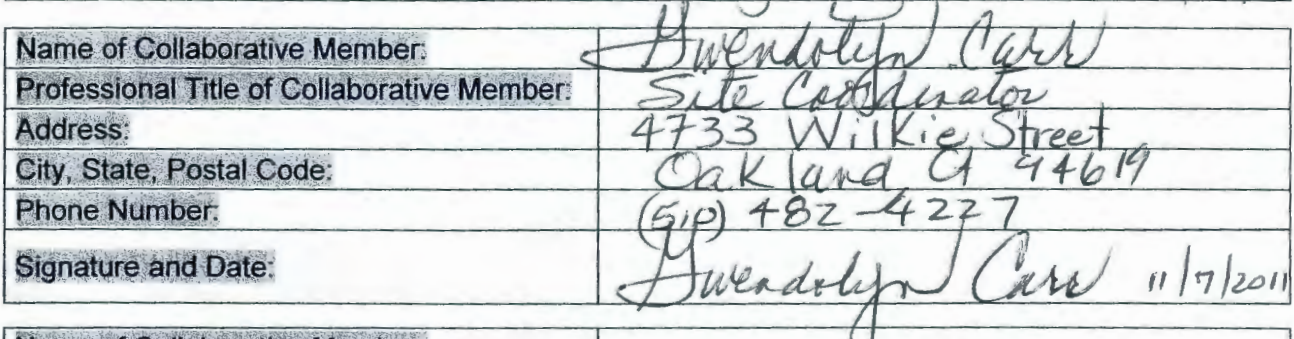 Name of Collaborative Member: Gwendolyn Carr
Professional Title of Collaborative Member: Site Coordinator
Address: 4733 Wilkie Street
City, State, Postal Code: Oakland CA 94619
Phone Number: (510) 482-4227
Signature and Date: Gwendolyn Carr 11/7/2011